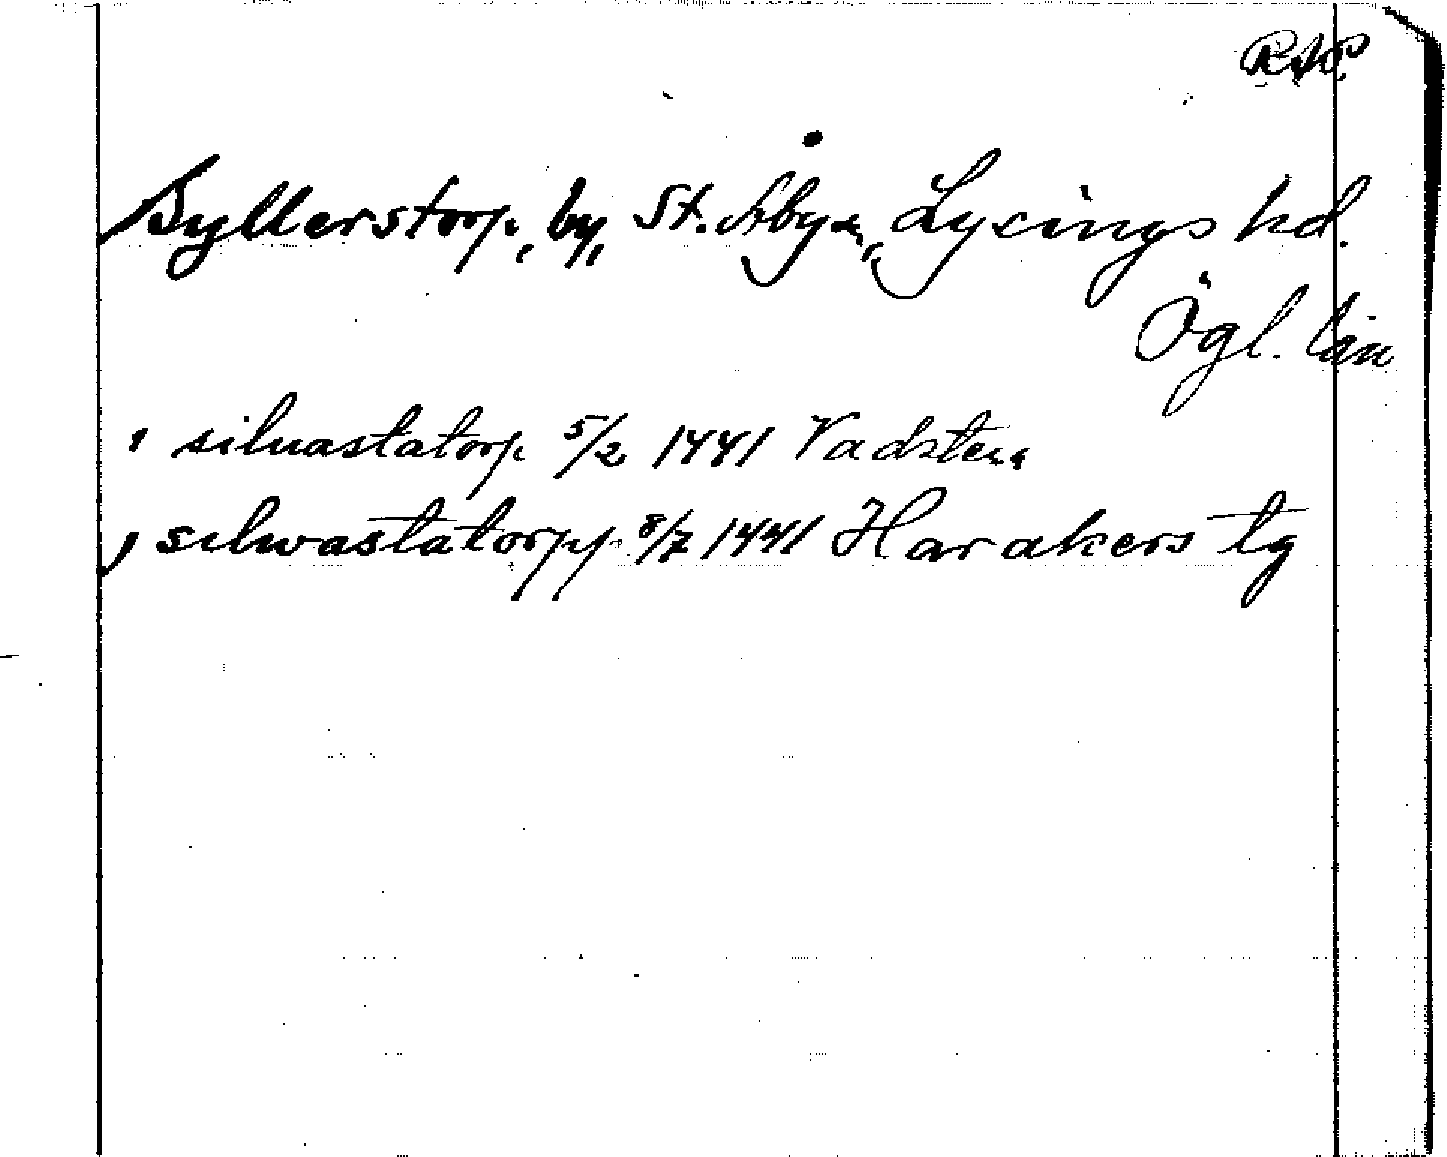 RAP.
Syllerstorp, by, St. Åby sn, Lysings hd.
Ögl. län
i siluastatorp 5/2 1441 Vadsten
j silwastatorpp 8/7 1441 Harakers tg